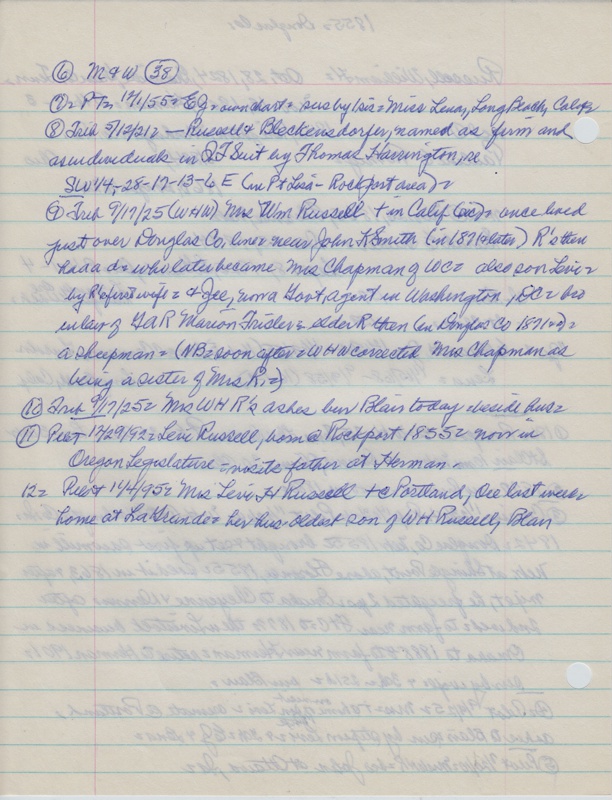 ⑥ M & W (38)
⑦ = PTn 1/1/55 = EJ = own chart = sus by Isis = Miss Lena, Long Beach, Calif
⑧ Trib 5/12/21 = — Russell & Bleckensdorfer, named as firm and
as individuals in QT Suit by Thomas Harrington, re
SW 1/4, -28-17-13-6 E (in Pt Lisa - Rockport area) =
⑨ Trib 9/17/25 (WHW) Mrs Wm Russell + in Calif = once lived
just over Douglas Co, line = near John K Smith (in 1871 & later) R's then
had a d = who later became Mrs Chapman of WC = also son Levi =
by R's first wife = & Gee, now a Govt, agent in Washington, DC = bro
in law of GAR Marion Frider = elder R then (in Douglas Co 1871 = )
a sheepman = (NB = soon after = WHW corrected Mrs Chapman as
being a sister of Mrs R. =)
⑩ Trib 9/17/25 = Mrs WH R's ashes bur Blair today = beside hus =
⑪ Pilot 12/29/92 = Levi Russell, born @ Rockport 1855 = now in
Oregon Legislature = visits father at Herman -
12 = Pilot 1/4/95 = Mrs Levi H Russell + @ Portland, Ore last week
home at La Grande = her hus oldest son of WH Russell, Blair